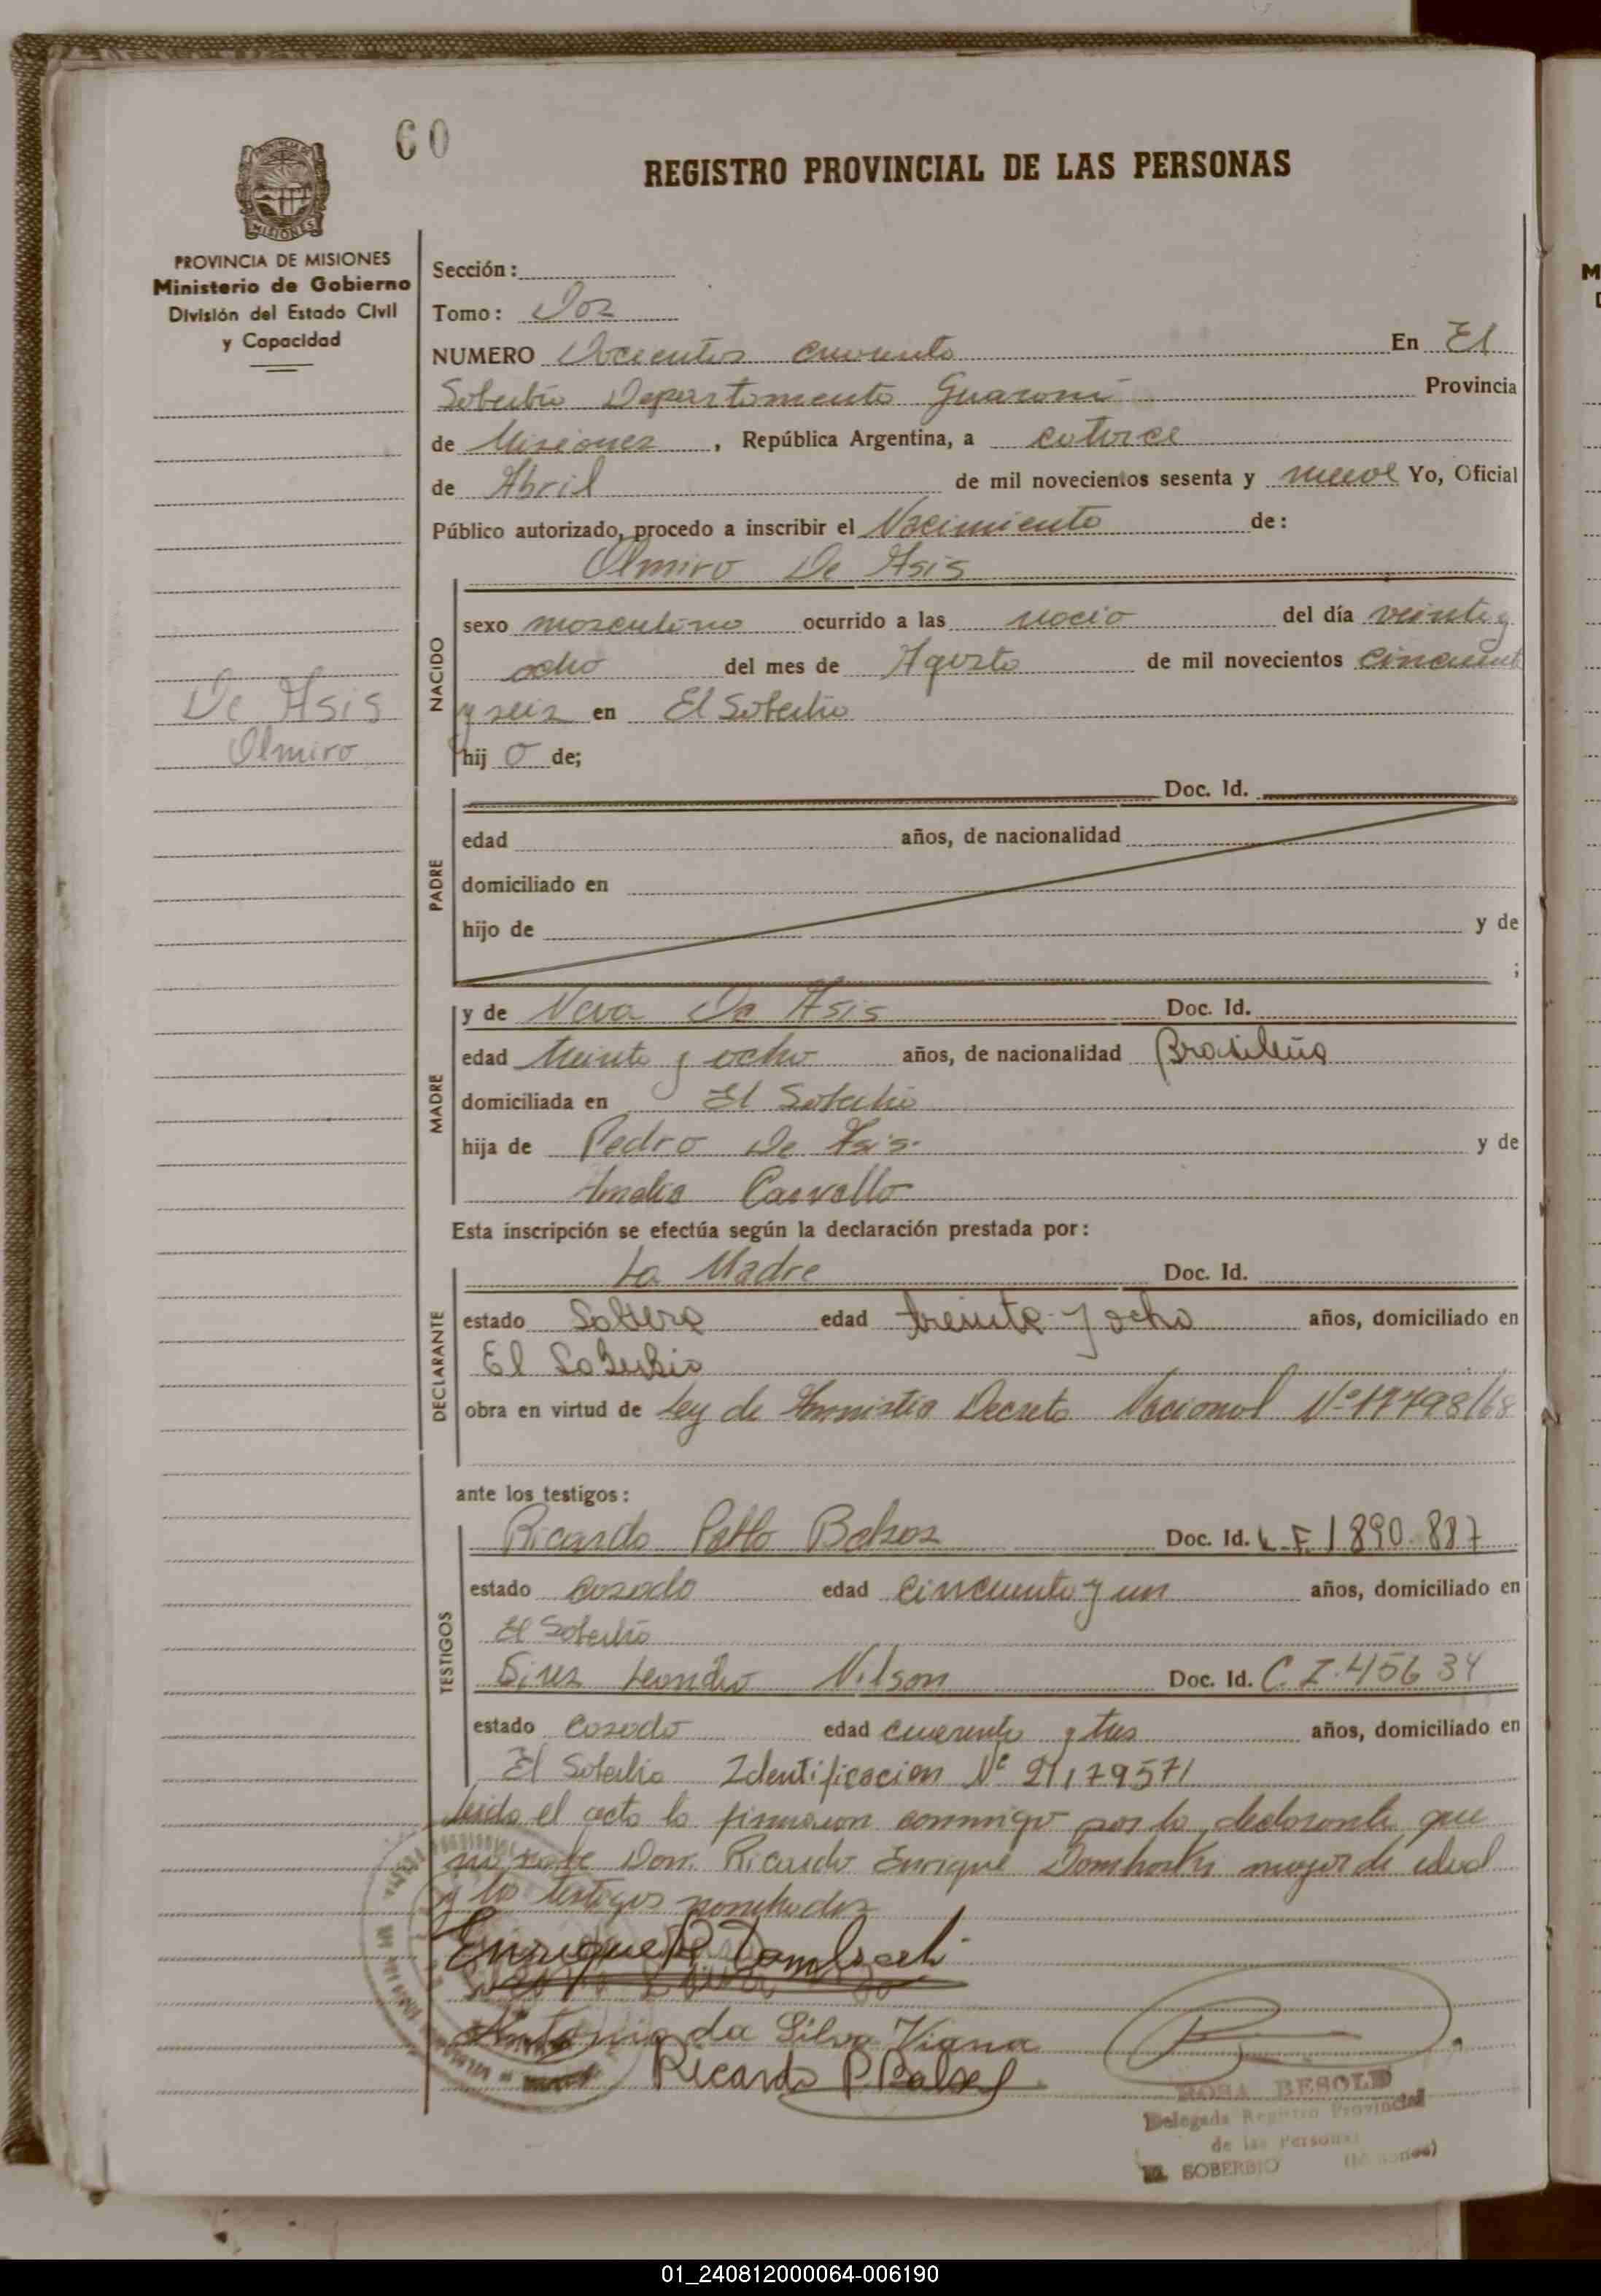 60
REGISTRO PROVINCIAL DE LAS PERSONAS
PROVINCIA DE MISIONES
Ministerio de Gobierno
División del Estado Civil
y Capacidad
Sección:
Tomo: Dos
NUMERO Doscientos cuarenta En El
Soberbio Departamento Guaraní Provincia
de Misiones, República Argentina, a catorce
de Abril de mil novecientos sesenta y nueve Yo, Oficial
Público autorizado, procedo a inscribir el Nacimiento de:
Olmiro De Asis
NACIDO
sexo masculino ocurrido a las del día veinte y
ocho del mes de Agosto de mil novecientos cincuent
y seis en El Soberbio
hij o de;
De Asis
Olmiro
PADRE
Doc. Id.
edad años, de nacionalidad
domiciliado en
hijo de y de
;
MADRE
y de De Asis Doc. Id.
edad treinta y ocho años, de nacionalidad Brasileña
domiciliada en El Soberbio
hija de Pedro De Asis y de
Amalia Carvallo
Esta inscripción se efectúa según la declaración prestada por:
DECLARANTE
La Madre Doc. Id.
estado Soltera edad treinta y ocho años, domiciliado en
El Soberbio
obra en virtud de Ley de Amnistia Decreto Nacional Nº 17798/68
ante los testigos:
TESTIGOS
Ricardo Pablo Doc. Id. L.E. 1890.887
estado casado edad cincuenta y un años, domiciliado en
El Soberbio
Leandro Nilson Doc. Id. C.I. 45634
estado casado edad cuarenta y tres años, domiciliado en
El Soberbio Identificacion Nº 21,179571
Leido el acta la firmaron conmigo por la declarante que
no sabe Don Ricardo Enrique mayor de edad
y los testigos nombrados
Enrique R.
Antonio da Silva Viana
Ricardo P.
ROSA BESOLD
Delegada Registro Provincial
de las Personas
EL SOBERBIO (Misiones)
01_240812000064-006190